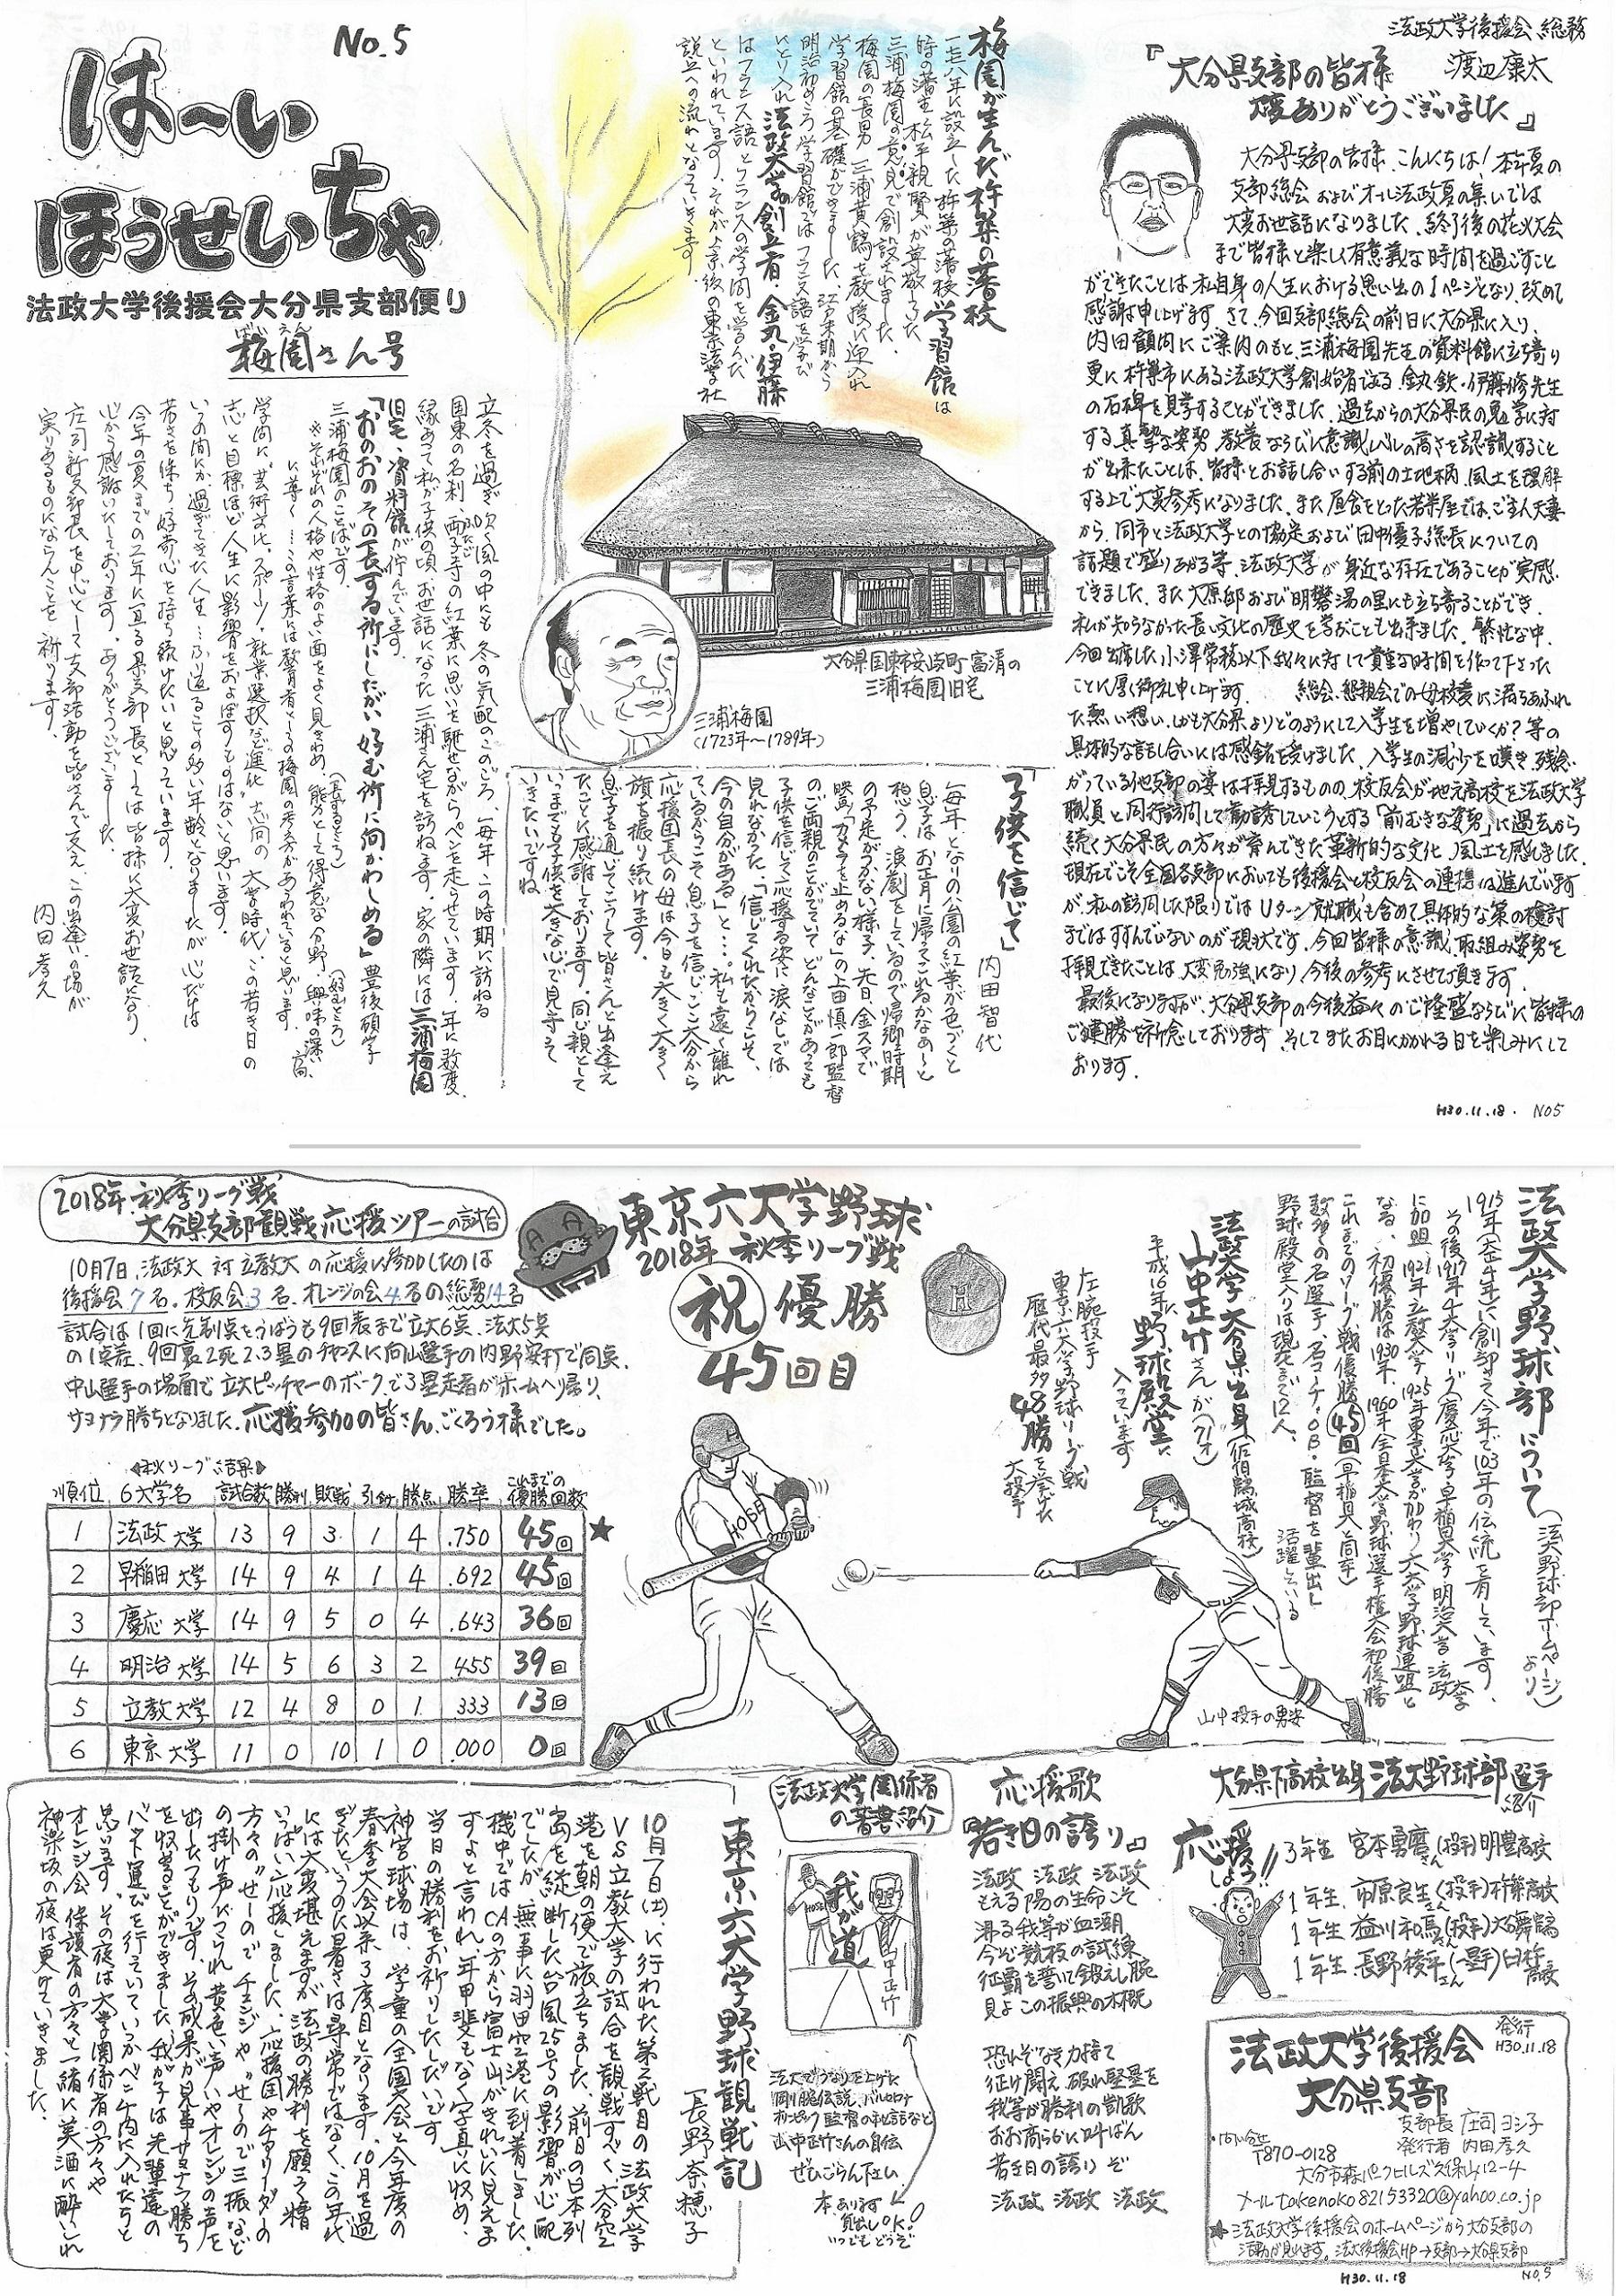 No.5
は〜い
ほうせいちゃ
法政大学後援会大分県支部便り
梅園さん号
法政大学後援会 総務
渡辺康太
『大分県支部の皆様
大変ありがとうございました』
大分県支部の皆様、こんにちは！本年夏の
支部総会およびオール法政夏の集いでは
大変お世話になりました。終了後の花火大会
まで皆様と楽しく有意義な時間を過ごすこと
ができたことは私自身の人生における思い出の1ページとなり、改めて
感謝申し上げます。さて、今回支部総会の前日に大分県に入り、
内田顧問にご案内のもと、三浦梅園先生の資料館に立ち寄り
更に杵築市にある法政大学創始者である金丸鉄・伊藤修先生
の石碑を見学することができました。過去からの大分県民の勉学に対
する真摯な姿勢、教養ならびに意識レベルの高さを認識すること
が出来たことは、皆様とお話し合いする前の土地柄、風土を理解
する上で大変参考になりました。また昼食をとった若栄屋では、ご主人夫妻
から、同市と法政大学との協定および田中優子総長についての
話題で盛りあがる等、法政大学が身近な存在であることが実感
できました。また大原邸および明礬湯の里にも立ち寄ることができ、
私が知らなかった長い文化の歴史を学ぶことも出来ました。繁忙な中、
今回出席した小澤常務以下我々に対して貴重な時間を作って下さった
ことに厚く御礼申し上げます。 総会、懇親会での母校愛に満ちあふれ
た熱い想い、しかも大分県よりどのようにして入学生を増やしていくか？等の
具体的な話し合いには感銘を受けました。入学生の減少を嘆き、残念
がっている他支部の姿は拝見するものの、校友会が地元高校を法政大学
職員と同行訪問して勧誘していこうとする「前むきな姿勢」に過去から
続く大分県民の方々が育んできた革新的な文化、風土を感じました。
現在でこそ全国各支部においても後援会と校友会の連携は進んでいます
が、私の訪問した限りではUターン就職も含めて具体的な策の検討
まではすすんでいないのが現状です。今回皆様の意識、取組み姿勢を
拝見できたことは大変勉強になり、今後の参考にさせて頂きます。
最後になりますが、大分県支部の今後益々のご隆盛ならびに皆様の
ご健勝を祈念しております。そしてまたお目にかかれる日を楽しみにして
おります。
H30.11.18. NO5
梅園が生んだ杵築の藩校
学習館は
一七八八年に設立した杵築の藩校
時の藩主、松平親賢が尊敬していた
三浦梅園の意見で創設されました。
梅園の長男 三浦黄鶴を教授に迎入れ
学習館の基礎ができました。江戸末期から
明治初めころ学習館ではフランス語を学び
とり入れ法政大学の創立者、金丸・伊藤
はフランス語とフランスの学問を学んだ
といわれています。それが上京後の東京法学社
設立への流れとなっていきます。
大分県国東市安岐町富清の
三浦梅園旧宅
三浦梅園
(1723年〜1789年)
立冬を過ぎ吹く風の中にも冬の気配のこのごろ、毎年この時期に訪ねる
国東の名刹、両子寺の紅葉に思いを馳せながらペンを走らせています。年に数度、
縁あって私が子供の頃お世話になった三浦さん宅を訪ねます。家の隣には三浦梅園
旧宅、資料館が佇んでいます。
「おのおのその長ずる所にしたがい好む所に向かわしめる」豊後碩学
三浦梅園のことばです。
(長ずるところ) (好むところ)
※それぞれの人格や性格のよい面をよく見きわめ、能力として得意な分野・興味の深い方向、
に導く…この言葉には教育者としての梅園の考え方があらわれていると思います。
学問に、芸術文化、スポーツ、就業選択など進化、志向の大学時代、この若き日の
志と目標ほど人生に影響をおよぼすものはないと思います。
いつの間にか過ぎてきた人生…ふり返ることの多い年齢となりましたが心だけは
若さを保ち、好奇心を持ち続けたいと思っています。
今年の夏までの二年に亘る県支部長としては皆様に大変お世話になり、
心から感謝いたしております。ありがとうございました。
庄司新支部長を中心として支部活動を皆さんで支え、この出逢いの場が
実りあるものにならんことを祈ります。
内田孝久
「子供を信じて」
内田智代
毎年、となりの公園の紅葉が色づくと
息子は、お正月に帰ってこれるかなあ〜と
想う。演劇をしているので帰郷時期
の予定がつかない様子、先日、金スマで
映画「カメラを止めるな」の上田慎一郎監督
のご両親のことがでていて、どんなことがあっても
子供を信じて応援する姿に涙なしでは
見れなかった。「信じてくれたからこそ、
今の自分がある」と…。私も遠く離れ
ているからこそ息子を信じここ大分から
応援団長の母は今日も大きく大きく
旗を振り続けます。
息子を通じてこうして皆さんと出逢え
たことに感謝しております。同じ親として
いつまでも子供を大きな心で見守って
いきたいですね
2018年 秋季リーグ戦
大分県支部観戦応援ツアーの試合
10月7日、法政大 対 立教大 の応援に参加したのは
後援会7名、校友会3名、オレンジの会4名の総勢14名
試合は1回に先制点をうばうも9回表まで立大6点、法大5点
の1点差、9回裏2死2.3塁のチャンスに向山選手の内野安打で同点、
中山選手の場面で立大ピッチャーのボークで3塁走者がホームへ帰り、
サヨナラ勝ちとなりました。応援参加の皆さん、ごくろう様でした。
東京六大学野球
2018年 秋季リーグ戦
祝 優勝
45回目
A
H
HOSEI
《秋リーグ結果》
順位 6大学名 試合数 勝利 敗戦 引分 勝点 勝率 これまでの優勝回数
1 法政大学 13 9 3 1 4 .750 45回 ★
2 早稲田大学 14 9 4 1 4 .692 45回
3 慶応大学 14 9 5 0 4 .643 36回
4 明治大学 14 5 6 3 2 .455 39回
5 立教大学 12 4 8 0 1 .333 13回
6 東京大学 11 0 10 1 0 .000 0回
法政大学野球部について
(法大野球部ホームページより)
1915年(大正4年)に創部して今年で103年の伝統を有しています。
その後1917年4大学リーグ(慶応大学、早稲田大学、明治大学、法政大学
に加盟、1921年立教大学、1925年東京大学が加わり六大学野球連盟と
なる。初優勝は1930年、1960年全日本大学野球選手権大会初優勝
これまでのリーグ戦優勝45回(早稲田と同率)
数多くの名選手、名コーチ、OB・監督を輩出し
活躍している
野球殿堂入りは現在まで12人、
法政大学 大分県出身(佐伯鶴城高校)
山中正竹さんが(71才)
平成16年に野球殿堂に
入っています
左腕投手
東京六大学野球リーグ戦
歴代最多48勝を挙げた
大投手
山中投手の勇姿
東京六大学野球観戦記
長野奈穂子
10月7日(土)に行われた第2戦目の法政大学
VS立教大学の試合を観戦すべく、大分空
港を朝の便で旅立ちました。前日の日本列
島を縦断した台風25号の影響が心配
でしたが、無事に羽田空港に到着しました。
機中ではCAの方から富士山がきれいに見えま
すよと言われ、年甲斐もなく写真に収め、
当日の勝利をお祈りしたしだいです
神宮球場は、学童の全国大会と今年度の
春季大会以来3度目となります。10月を過
ぎたというのに暑さは尋常ではなく、この年代
には大変堪えますが法政の勝利を願って精
いっぱい応援しました。応援団やチアリーダーの
方々の"せーので チェンジや"せーので三振など
の掛け声につられ、黄色い声いやオレンジの声を
出したつもりです。その成果が見事サヨナラ勝ち
を収めることができました。我が子は先輩達の
バット運びを行っていていつかベンチ内に入れたらと
思います。その夜は大学関係者の方々や
オレンジ会、保護者の方々と一緒に美酒に酔いしれ
神楽坂の夜は更けていきました。
法政大学関係者
の著書紹介
我が道
山中正竹
法大でうなりを上げた
鋼腕伝説、バルセロナ
オリンピック監督の秘話など
山中正竹さんの自伝
ぜひごらん下さい
本、あります
貸出しOK!
いつでもどうぞ
応援歌
『若き日の誇り』
法政 法政 法政
もえる陽の生命こそ
滾る我等が血潮
今ぞ競技の試練
征覇を誓いて鍛えし腕
見よこの振興の大概
恐れぞなき力持て
征け闘え 破れ堅塁を
我等が勝利の凱歌
おお高らかに叫ばん
若き日の誇り ぞ
法政 法政 法政
大分県下高校出身 法大野球部選手
紹介
応援しよう!!
3年生 宮本勇磨さん(投手)明豊高校
1年生 市原良生さん(投手)杵築高校
1年生 益川和馬さん(投手)大分舞鶴
1年生 長野稜平さん(塁手)臼杵高校
法政大学後援会
大分県支部
発行
H30.11.18
支部長 庄司ヨシ子
発行者 内田孝久
・問い合せ
〒870-0128
大分市森パークヒルズ久保山12-4
メールtakenoko82153320@yahoo.co.jp
★法政大学後援会のホームページから大分支部の
活動が見れます。法大後援会HP→支部→大分県支部
H30.11.18 NO,5